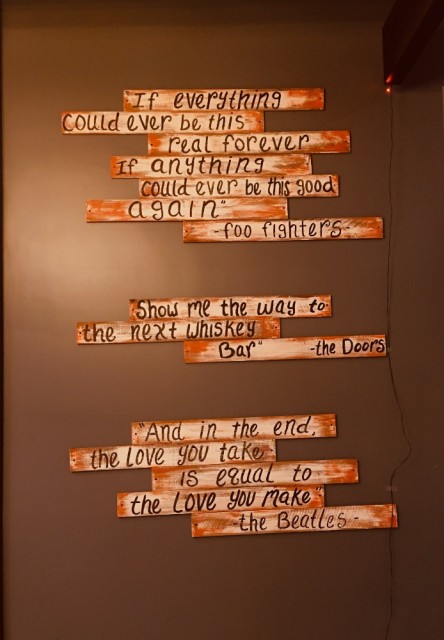 If everything
could ever be this
real forever
If anything
could ever be this good
again"
-foo fighters-
Show me the way to
the next whiskey
Bar" -the Doors
"And in the end,
the Love you take
is equal to
the Love you make"
-the Beatles-